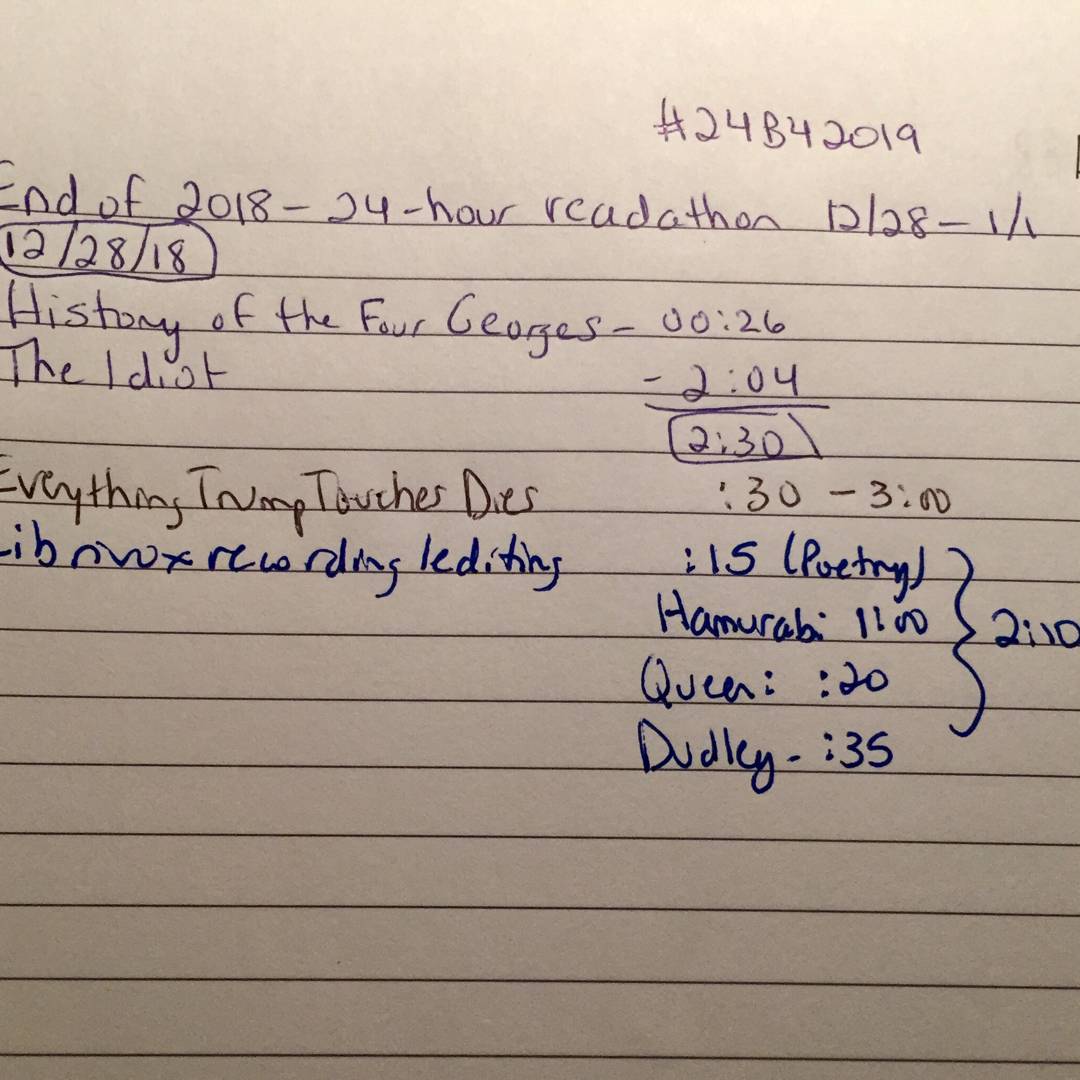 #24B42019
End of 2018 - 24-hour readathon 12/28 - 1/1
12/28/18
History of the Four Georges - 00:26
The Idiot - 2:04
2:30
Everything Trump Touches Dies :30 - 3:00
Librivox recording/editing :15 (Poetry)
Hamurabi 1:00 2:10
Queen: :20
Dudley - :35